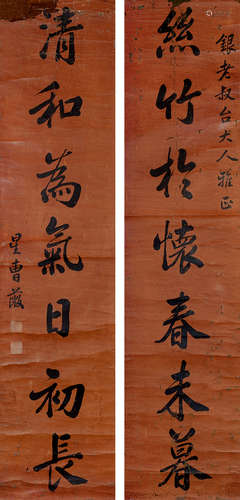 銀老叔台大人雅正
絲竹於懷春未暮
清和為氣日初長
星曹